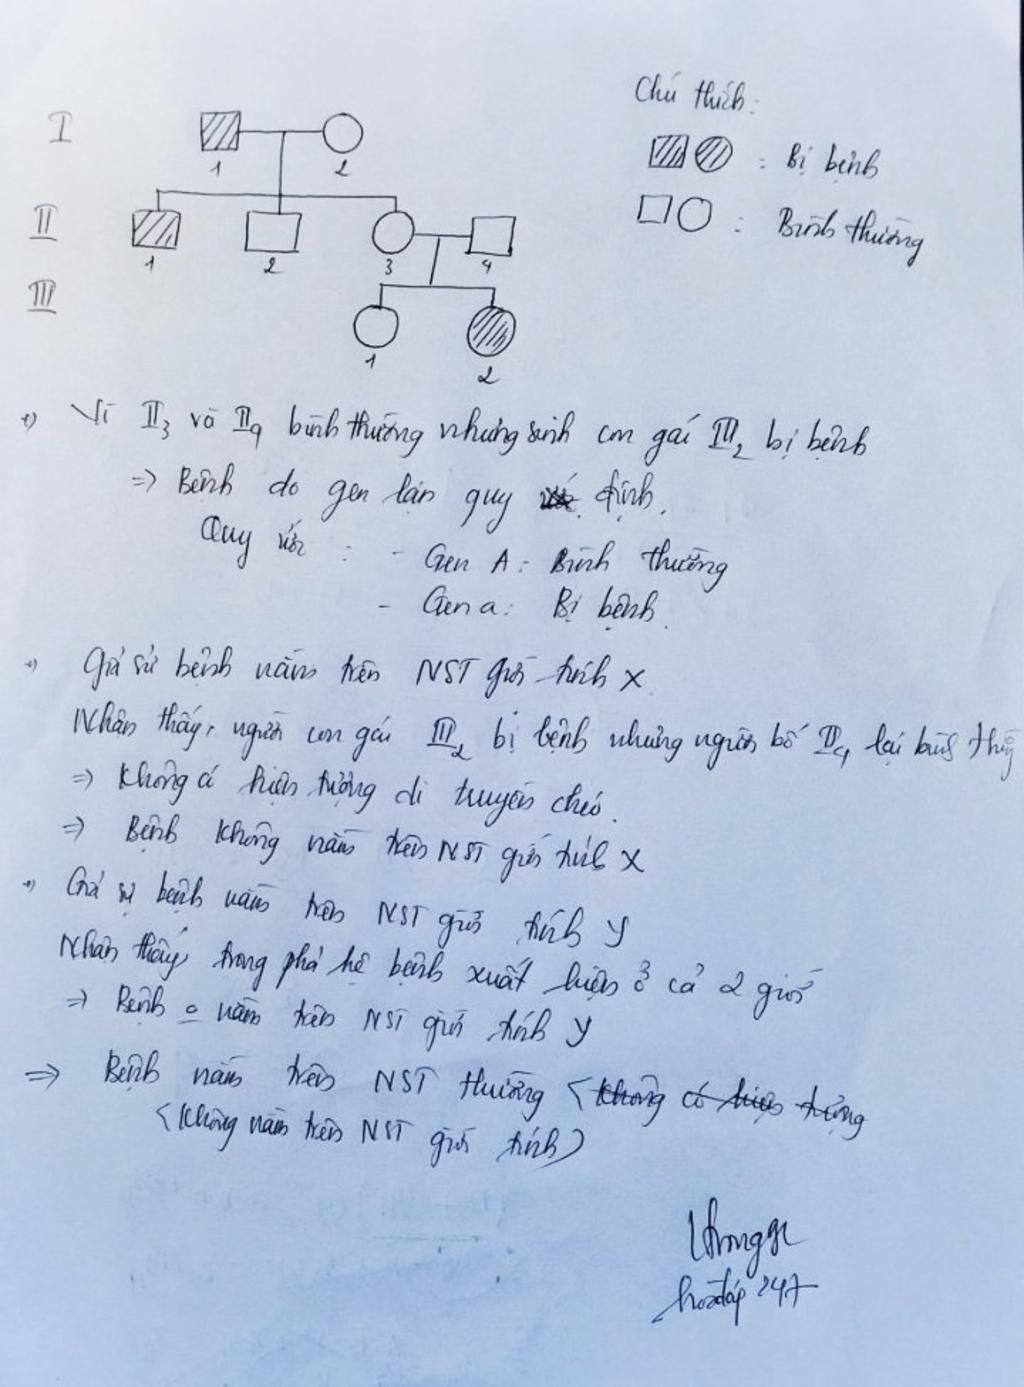 Chú thích:
I
1
2
: Bị bệnh
II
1
2
3
4
: Bình thường
III
1
2
+) Vì II3 và II4 bình thường nhưng sinh con gái III2 bị bệnh
=> Bệnh do gen lặn quy định.
Quy ước : - Gen A: Bình thường
- Gen a: Bị bệnh.
+) Giả sử bệnh nằm trên NST giới tính X
Nhận thấy, người con gái III2 bị bệnh nhưng người bố II4 lại bình
=> Không có hiện tượng di truyền chéo.
=> Bệnh không nằm trên NST giới tính X
+) Giả sử bệnh nằm trên NST giới tính Y
Nhận thấy, trong phả hệ bệnh xuất hiện ở cả 2 giới
=> Bệnh o nằm trên NST giới tính Y
=> Bệnh nằm trên NST thường < không có hiện tượng
<Không nằm trên NST giới tính)
hoidap 247